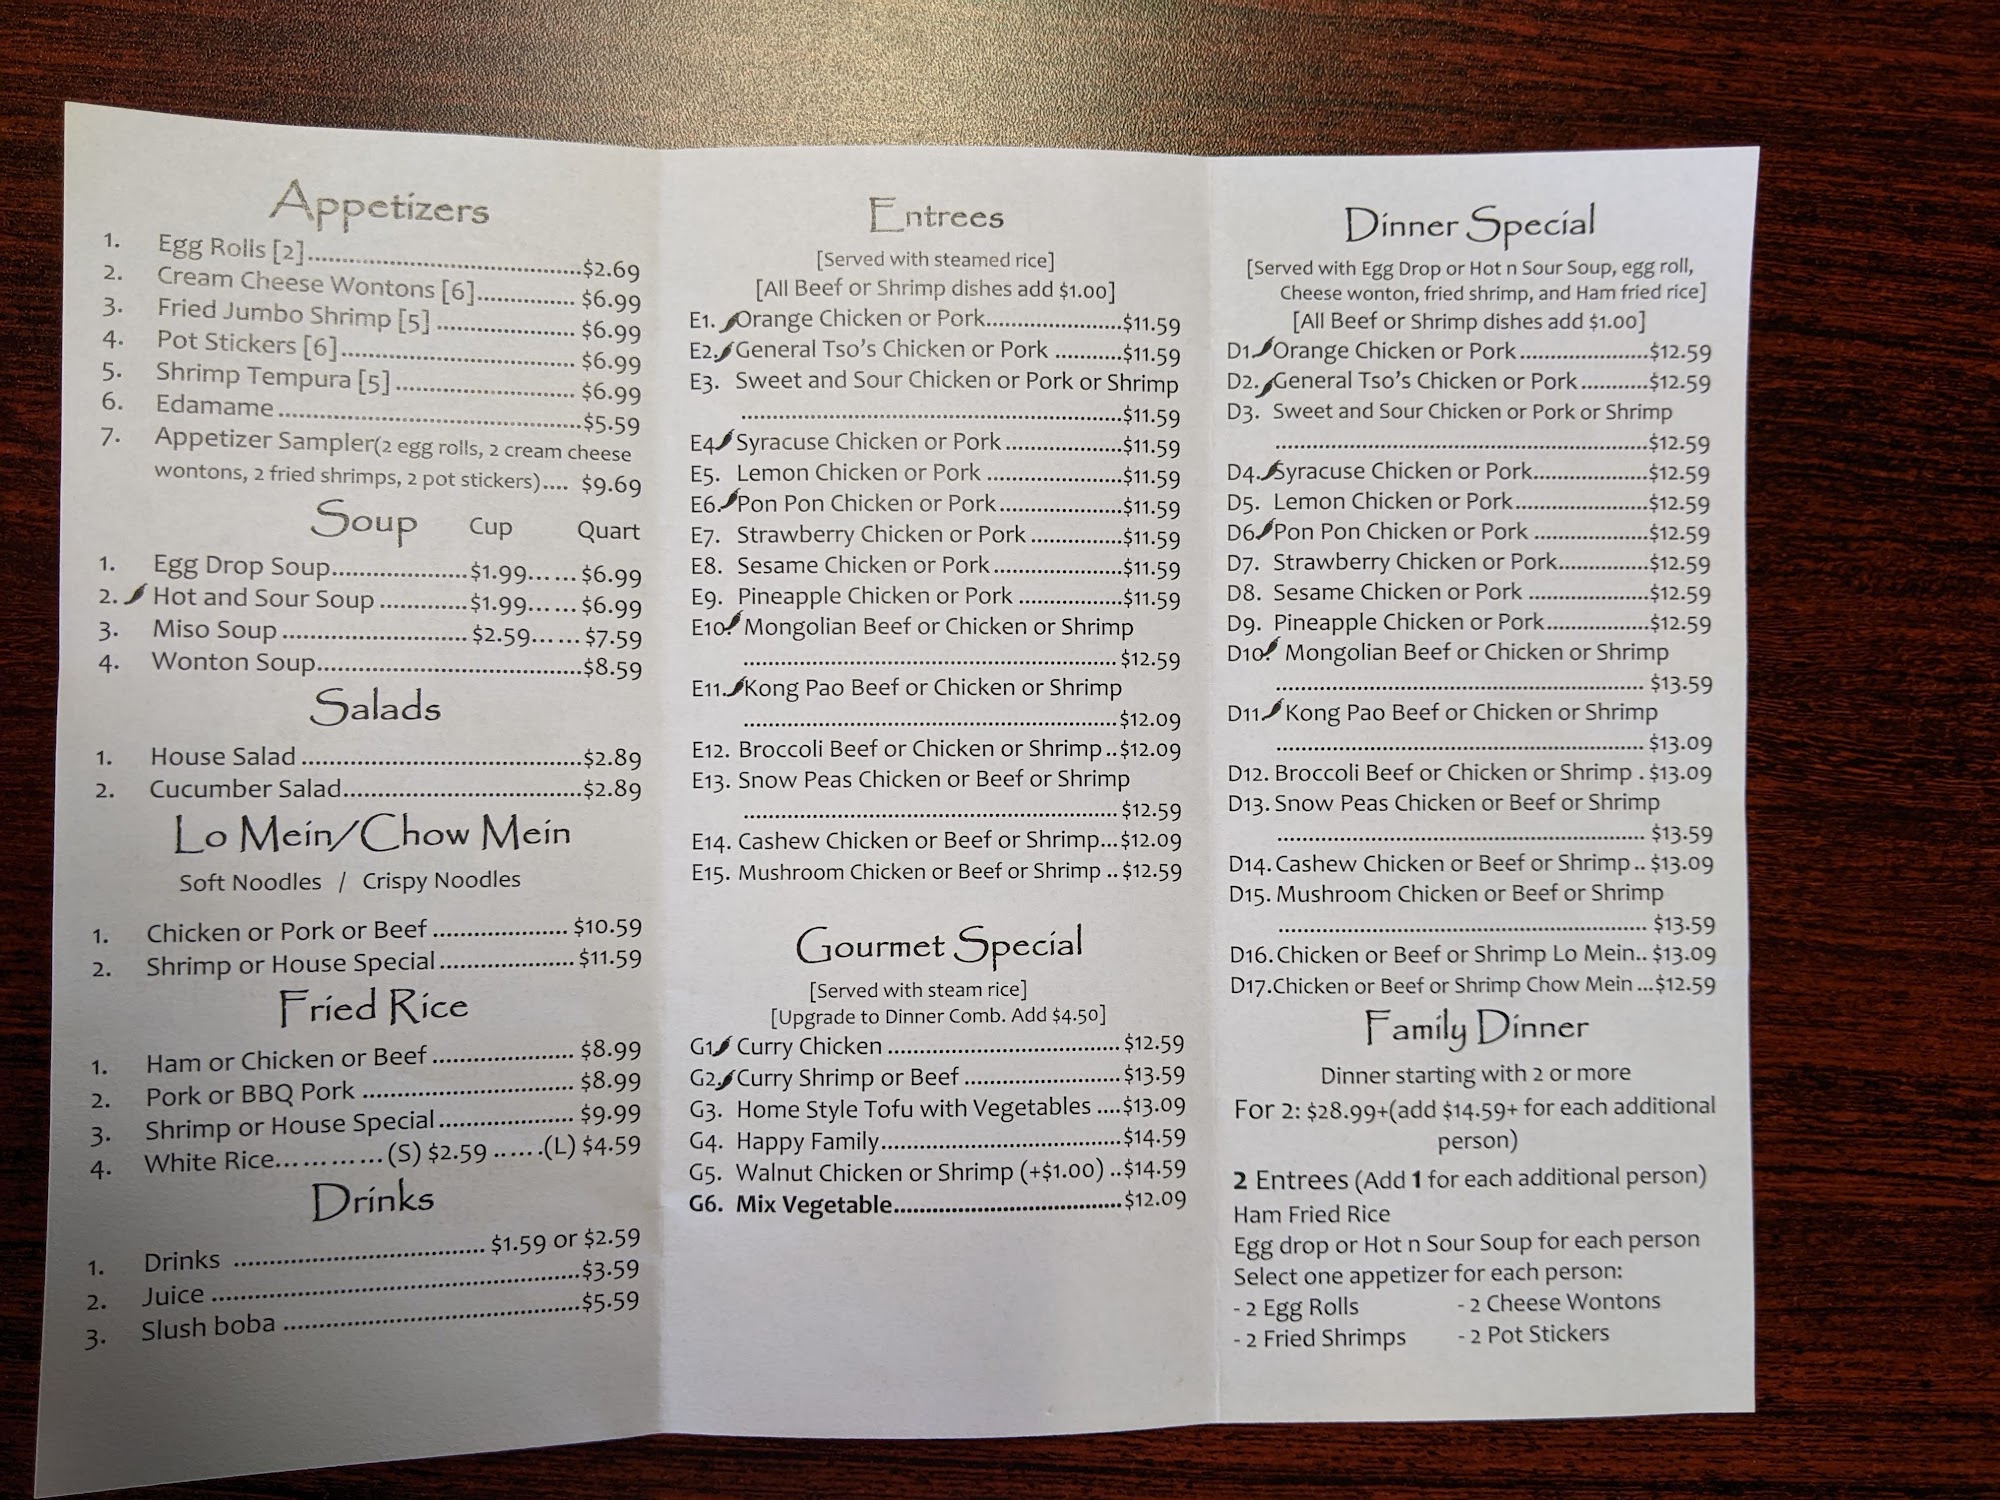 Appetizers
1. Egg Rolls [2]..........$2.69
2. Cream Cheese Wontons [6].......... $6.99
3. Fried Jumbo Shrimp [5] .......... $6.99
4. Pot Stickers [6].......... $6.99
5. Shrimp Tempura [5] .......... $6.99
6. Edamame ..........$5.59
7. Appetizer Sampler(2 egg rolls, 2 cream cheese
wontons, 2 fried shrimps, 2 pot stickers).... $9.69
Soup Cup Quart
1. Egg Drop Soup..........$1.99...... $6.99
2. Hot and Sour Soup ..........$1.99...... $6.99
3. Miso Soup .......... $2.59...... $7.59
4. Wonton Soup..........$8.59
Salads
1. House Salad ..........$2.89
2. Cucumber Salad..........$2.89
Lo Mein/Chow Mein
Soft Noodles / Crispy Noodles
1. Chicken or Pork or Beef .......... $10.59
2. Shrimp or House Special .......... $11.59
Fried Rice
1. Ham or Chicken or Beef .......... $8.99
2. Pork or BBQ Pork .......... $8.99
3. Shrimp or House Special.......... $9.99
4. White Rice............(S) $2.59 ......(L) $4.59
Drinks
1. Drinks .......... $1.59 or $2.59
2. Juice ..........$3.59
3. Slush boba ..........$5.59
Entrees
[Served with steamed rice]
[All Beef or Shrimp dishes add $1.00]
E1. Orange Chicken or Pork..........$11.59
E2. General Tso's Chicken or Pork ..........$11.59
E3. Sweet and Sour Chicken or Pork or Shrimp
..........$11.59
E4 Syracuse Chicken or Pork ..........$11.59
E5. Lemon Chicken or Pork ..........$11.59
E6. Pon Pon Chicken or Pork..........$11.59
E7. Strawberry Chicken or Pork ..........$11.59
E8. Sesame Chicken or Pork ..........$11.59
E9. Pineapple Chicken or Pork ..........$11.59
E10. Mongolian Beef or Chicken or Shrimp
.......... $12.59
E11. Kong Pao Beef or Chicken or Shrimp
..........$12.09
E12. Broccoli Beef or Chicken or Shrimp ..$12.09
E13. Snow Peas Chicken or Beef or Shrimp
.......... $12.59
E14. Cashew Chicken or Beef or Shrimp...$12.09
E15. Mushroom Chicken or Beef or Shrimp .. $12.59
Gourmet Special
[Served with steam rice]
[Upgrade to Dinner Comb. Add $4.50]
G1 Curry Chicken .......... $12.59
G2. Curry Shrimp or Beef ..........$13.59
G3. Home Style Tofu with Vegetables ....$13.09
G4. Happy Family..........$14.59
G5. Walnut Chicken or Shrimp (+$1.00) ..$14.59
G6. Mix Vegetable..........$12.09
Dinner Special
[Served with Egg Drop or Hot n Sour Soup, egg roll,
Cheese wonton, fried shrimp, and Ham fried rice]
[All Beef or Shrimp dishes add $1.00]
D1 Orange Chicken or Pork ..........$12.59
D2. General Tso's Chicken or Pork ..........$12.59
D3. Sweet and Sour Chicken or Pork or Shrimp
..........$12.59
D4. Syracuse Chicken or Pork..........$12.59
D5. Lemon Chicken or Pork..........$12.59
D6 Pon Pon Chicken or Pork ..........$12.59
D7. Strawberry Chicken or Pork..........$12.59
D8. Sesame Chicken or Pork ..........$12.59
D9. Pineapple Chicken or Pork..........$12.59
D10. Mongolian Beef or Chicken or Shrimp
.......... $13.59
D11. Kong Pao Beef or Chicken or Shrimp
.......... $13.09
D12. Broccoli Beef or Chicken or Shrimp . $13.09
D13. Snow Peas Chicken or Beef or Shrimp
.......... $13.59
D14. Cashew Chicken or Beef or Shrimp .. $13.09
D15. Mushroom Chicken or Beef or Shrimp
.......... $13.59
D16. Chicken or Beef or Shrimp Lo Mein.. $13.09
D17. Chicken or Beef or Shrimp Chow Mein ...$12.59
Family Dinner
Dinner starting with 2 or more
For 2: $28.99+(add $14.59+ for each additional
person)
2 Entrees (Add 1 for each additional person)
Ham Fried Rice
Egg drop or Hot n Sour Soup for each person
Select one appetizer for each person:
- 2 Egg Rolls - 2 Cheese Wontons
- 2 Fried Shrimps - 2 Pot Stickers